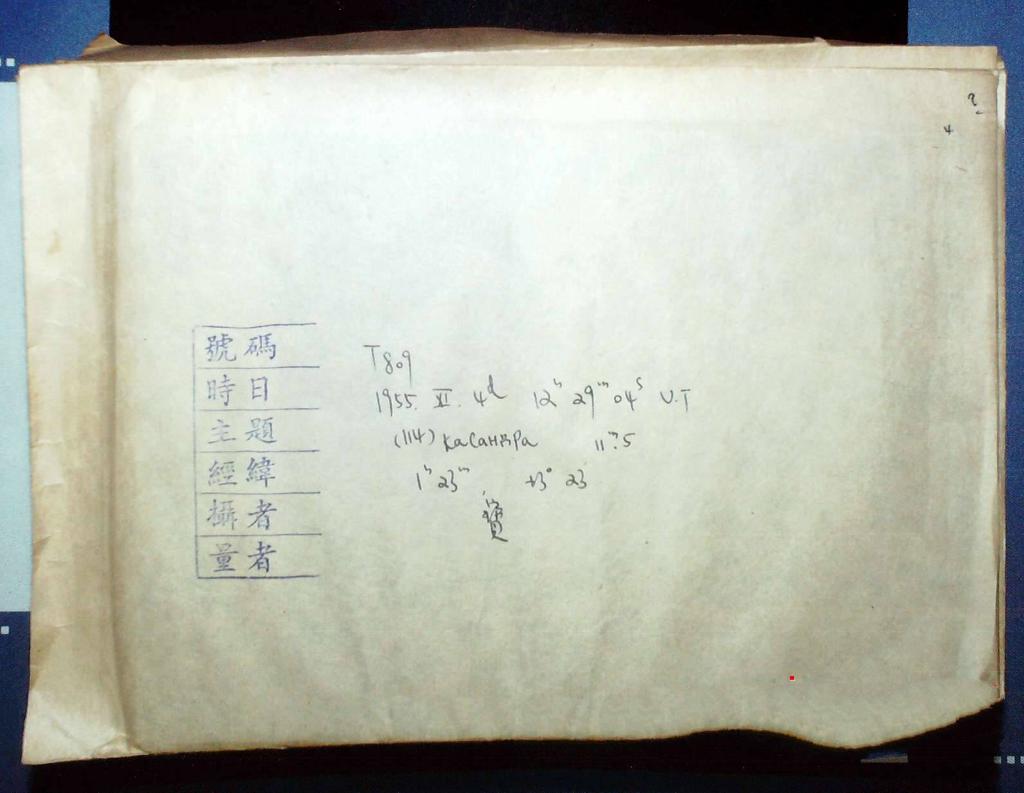 2
4
號碼 T809
時日 1955. XI. 4ᵈ 12ʰ 29ᵐ 04ˢ U.T
主題 (114) Касандра 11ᵐ.5
經緯 1ʰ 23ᵐ +3° 23
攝者 寶
量者